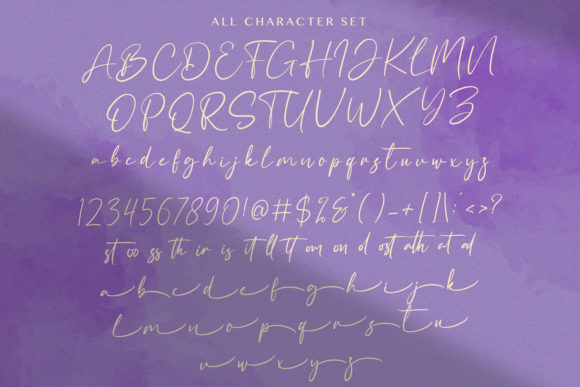 ALL CHARACTER SET
ABCDEFGHIJKLMN
OPQRSTUVWXYZ
abcdefghijklmnopqrstuvwxyz
1234567890!@#$%&*()-+[]/|\:'<>?
st oo ss th ir is it ll tt om on d ost ath at al
a b c d e f g h i j k
l m n o p q r s t u
v w x y z